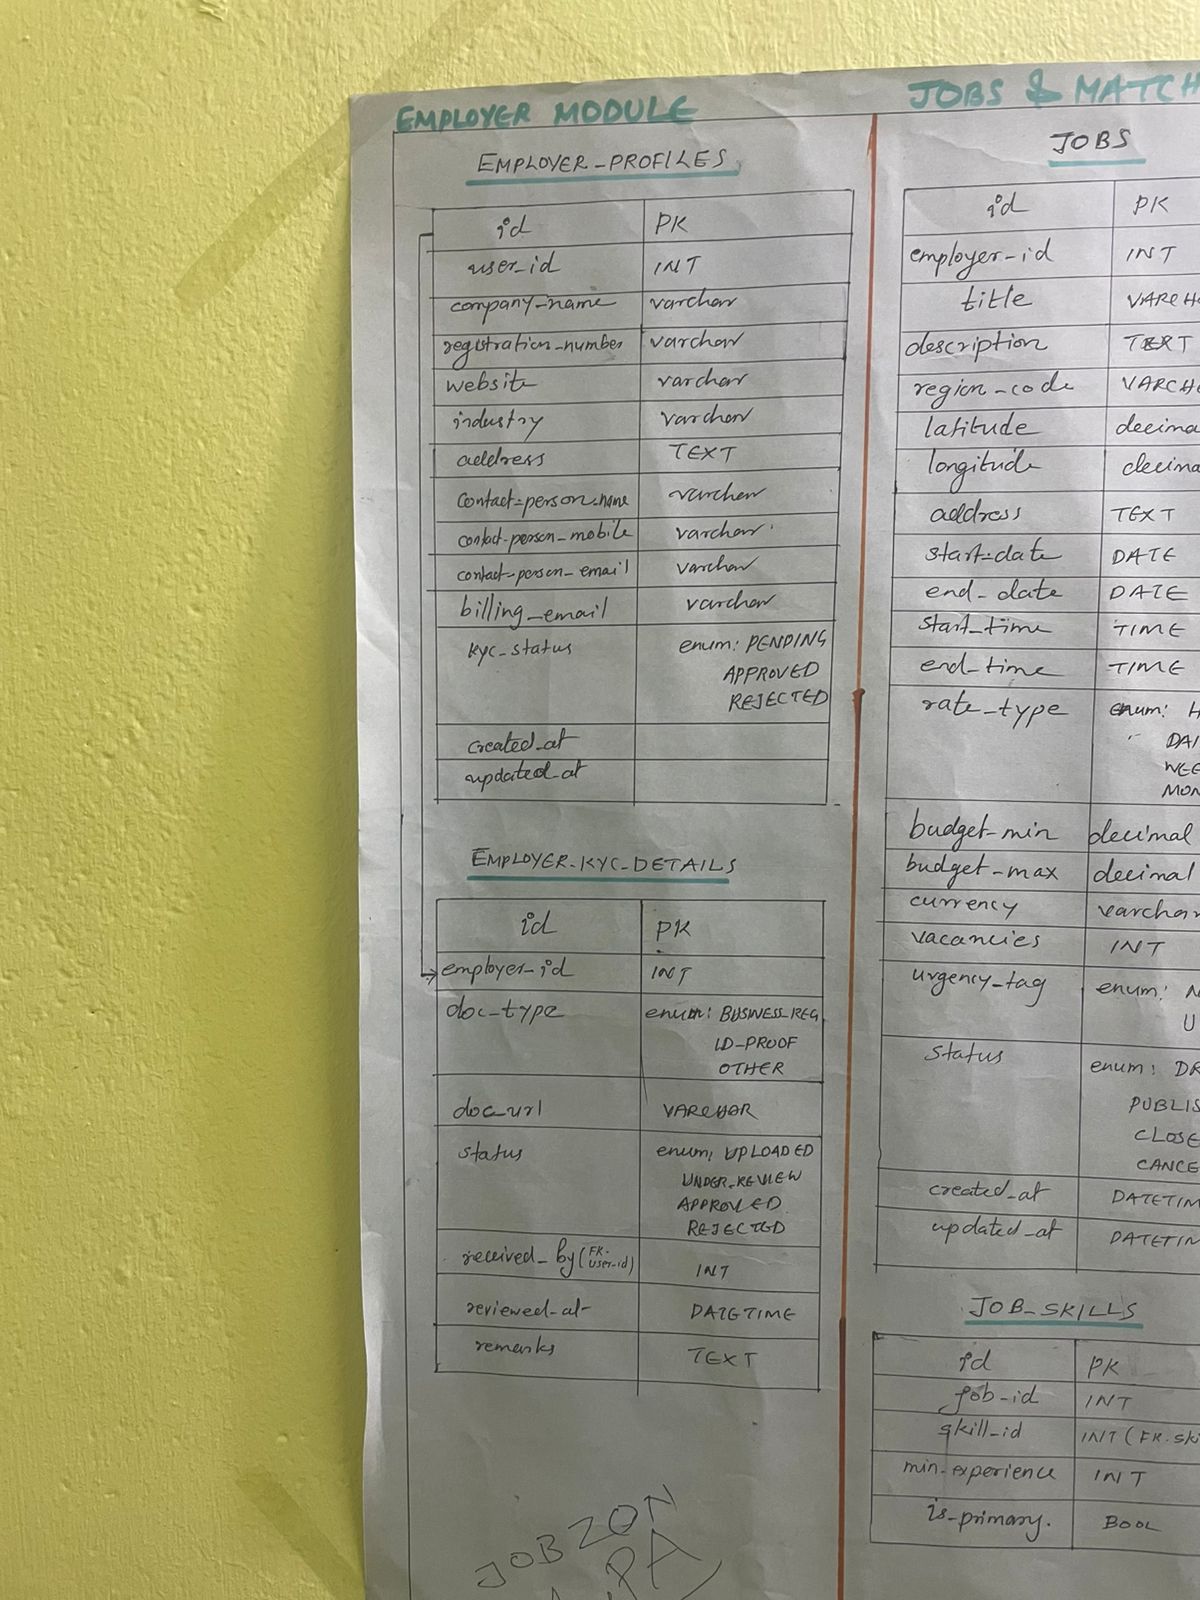 EMPLOYER MODULE
EMPLOYER_PROFILES
id PK
user_id INT
company_name varchar
registration_number varchar
website varchar
industry varchar
address TEXT
contact_person_name varchar
contact_person_mobile varchar
contact_person_email varchar
billing_email varchar
kyc_status enum: PENDING
APPROVED
REJECTED
created_at
updated_at
EMPLOYER_KYC_DETAILS
id PK
employer_id INT
doc_type enum: BUSINESS_REG
ID_PROOF
OTHER
doc_url VARCHAR
status enum: UPLOADED
UNDER_REVIEW
APPROVED
REJECTED
received_by (FK. user_id) INT
reviewed_at DATETIME
remarks TEXT
JOBZON
JOBS & MATCH
JOBS
id PK
employer_id INT
title VARCH
description TEXT
region_code VARCH
latitude decima
longitude decima
address TEXT
start_date DATE
end_date DATE
start_time TIME
end_time TIME
rate_type enum: H
DAI
WEE
MON
budget_min decimal
budget_max decimal
currency varchar
vacancies INT
urgency_tag enum: N
U
status enum: DR
PUBLIS
CLOSE
CANCE
created_at DATETIM
updated_at DATETIM
JOB_SKILLS
id PK
job_id INT
skill_id INT (FK. ski
min_experience INT
is_primary. BOOL